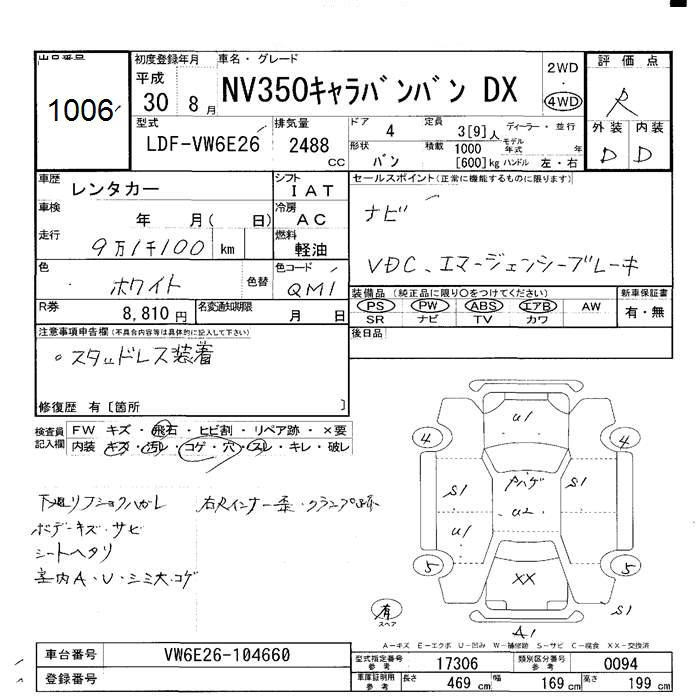 出品番号
1006
初度登録年月
平成
30 8 月
車名・グレード
NV350キャラバンバン DX
2WD
・
4WD
評価点
R
外装 内装
D D
型式
LDF-VW6E26
排気量
2488
CC
ドア 4
定員 3[9]人
ディーラー・並行
形状 バン
積載 1000
[600]kg
モデル年式 年
ハンドル 左・右
車歴 レンタカー
シフト IAT
車検 年 月( 日)
冷房 AC
走行 9万1千100 km
燃料 軽油
色 ホワイト 色替
色コード QM1
R券 8,810円
名変通知期限 月 日
セールスポイント(正常に機能するものに限ります)
ナビ
VDC、エマージェンシーブレーキ
装備品(純正品に限り○をつけてください)
PS PW ABS エアB AW
SR ナビ TV カワ
新車保証書
有・無
後日品
注意事項申告欄(不具合内容等は具体的に記入して下さい)
。スタッドレス装着
修復歴 有〔箇所 〕
検査員記入欄
FW キズ・飛石・ヒビ割・リペア跡・×要
内装 キズ・汚レ・コゲ・穴・スレ・キレ・破レ
ボデーキズ・サビ
シートヘタリ
室内A・U・シミ大・コゲ
U1
4 4
S1 S1
U2
U1
5 5
XX
S1
有
スペア
A1
A-キズ E-エクボ U-凹み W-補修跡 S-サビ C-腐食 XX-交換済
車台番号 VW6E26-104660
登録番号
型式指定番号 参考 17306
類別区分番号 参考 0094
車庫証明用 参考 長さ 469 cm 幅 169 cm 高さ 199 cm